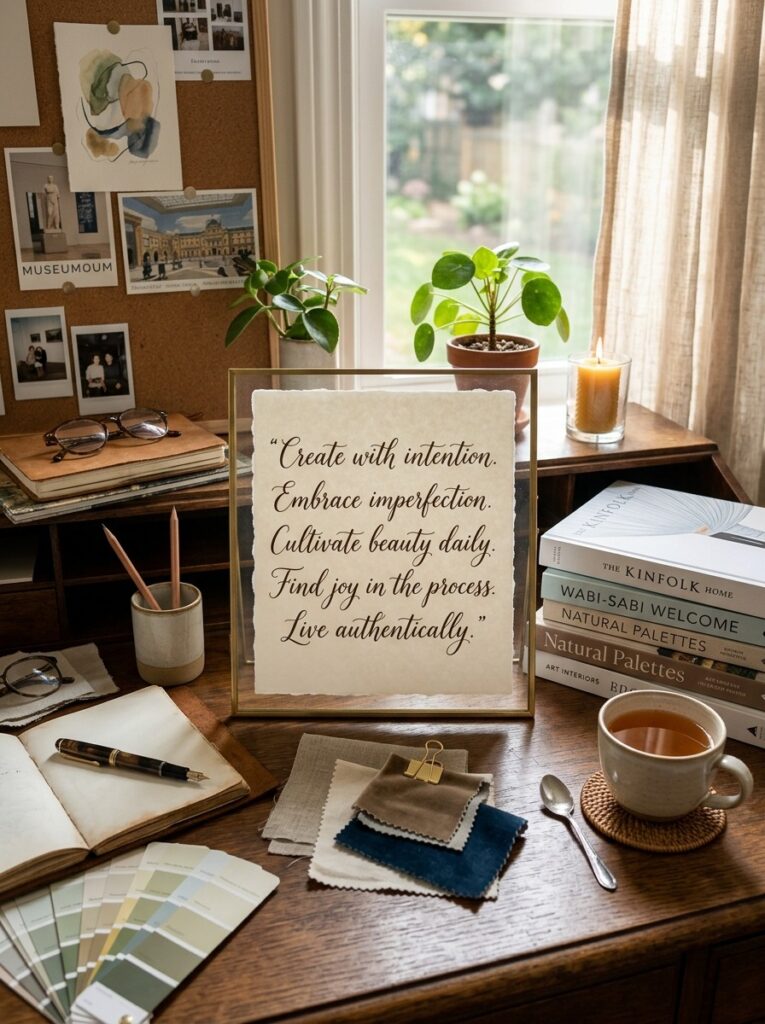 MUSEUMOUM
“Create with intention.
Embrace imperfection.
Cultivate beauty daily.
Find joy in the process.
Live authentically.”
THE KINFOLK
THE KINFOLK HOME
WABI-SABI WELCOME
NATURAL PALETTES
Natural Palettes
ART INTERIORS